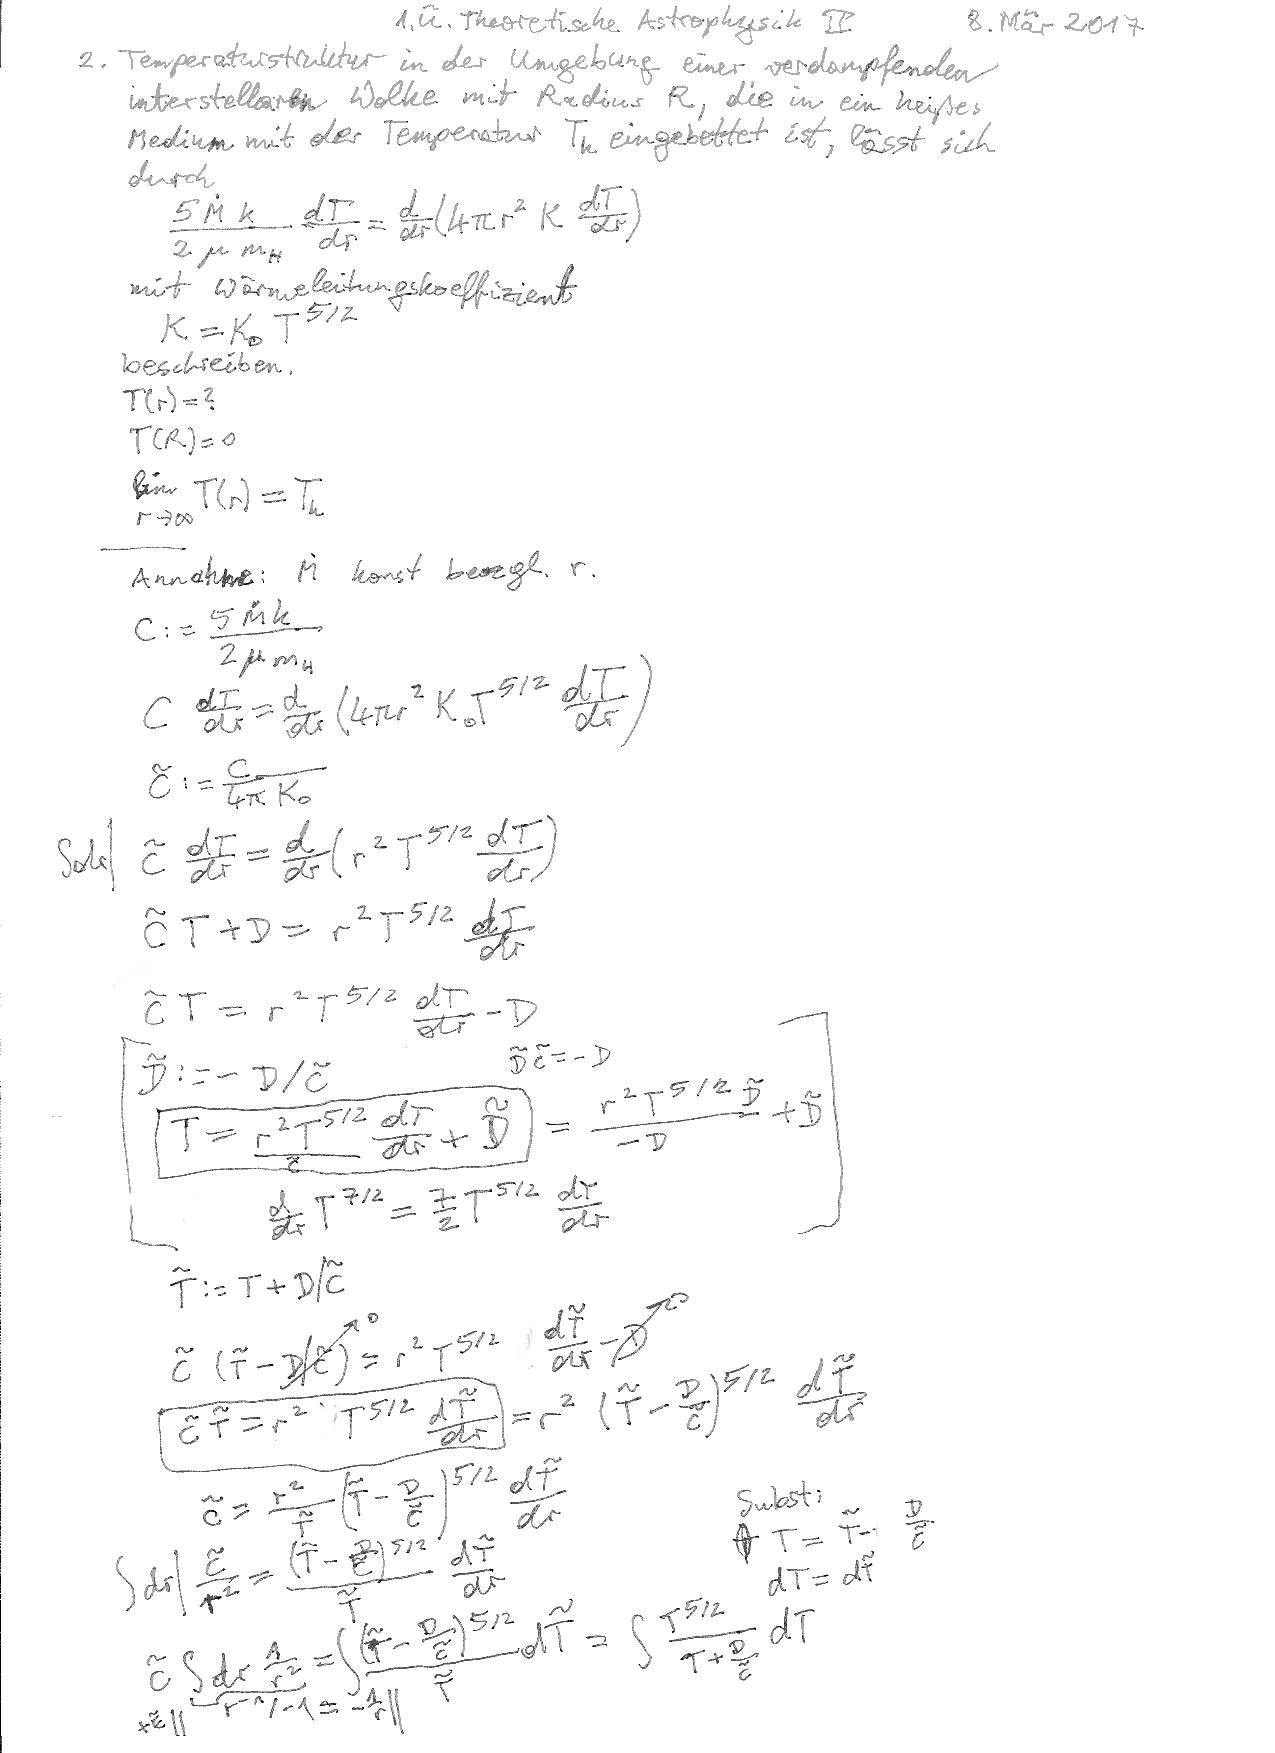 1. Ü. Theoretische Astrophysik II 8. Mär 2017
2. Temperaturstruktur in der Umgebung einer verdampfenden
interstellaren Wolke mit Radius R, die in ein heißes
Medium mit der Temperatur T_h eingebettet ist, lässt sich
durch
5 Ṁ k / 2 μ m_H dT/dr = d/dr (4πr² K dT/dr)
mit Wärmeleitungskoeffizient
K = K₀ T^5/2
beschreiben.
T(r) = ?
T(R) = 0
lim r→∞ T(r) = T_h
Annahme: Ṁ konst bezgl. r.
C := 5 Ṁ k / 2 μ m_H
C dT/dr = d/dr (4πr² K₀ T^5/2 dT/dr)
C̃ := C / 4π K₀
∫dr| C̃ dT/dr = d/dr (r² T^5/2 dT/dr)
C̃ T + D = r² T^5/2 dT/dr
C̃ T = r² T^5/2 dT/dr − D
D̃ := − D / C̃ D̃ C̃ = − D
T = r² T^5/2 / C̃ dT/dr + D̃ = r² T^5/2 D̃ / −D + D̃
d/dr T^7/2 = 7/2 T^5/2 dT/dr
T̃ := T + D/C̃
C̃ (T̃ − D/C̃) = r² T^5/2 dT̃/dr − D
C̃ T̃ = r² T^5/2 dT̃/dr = r² (T̃ − D/C̃)^5/2 dT̃/dr
C̃ = r²/T̃ (T̃ − D/C̃)^5/2 dT̃/dr
Subst:
T = T̃ − D/C̃
∫dr| C̃/r² = (T̃ − D/C̃)^5/2 / T̃ dT̃/dr
dT = dT̃
C̃ ∫dr 1/r² = ∫ (T̃ − D/C̃)^5/2 / T̃ dT̃ = ∫ T^5/2 / T + D/C̃ dT
r^−1/−1 = −1/r ||